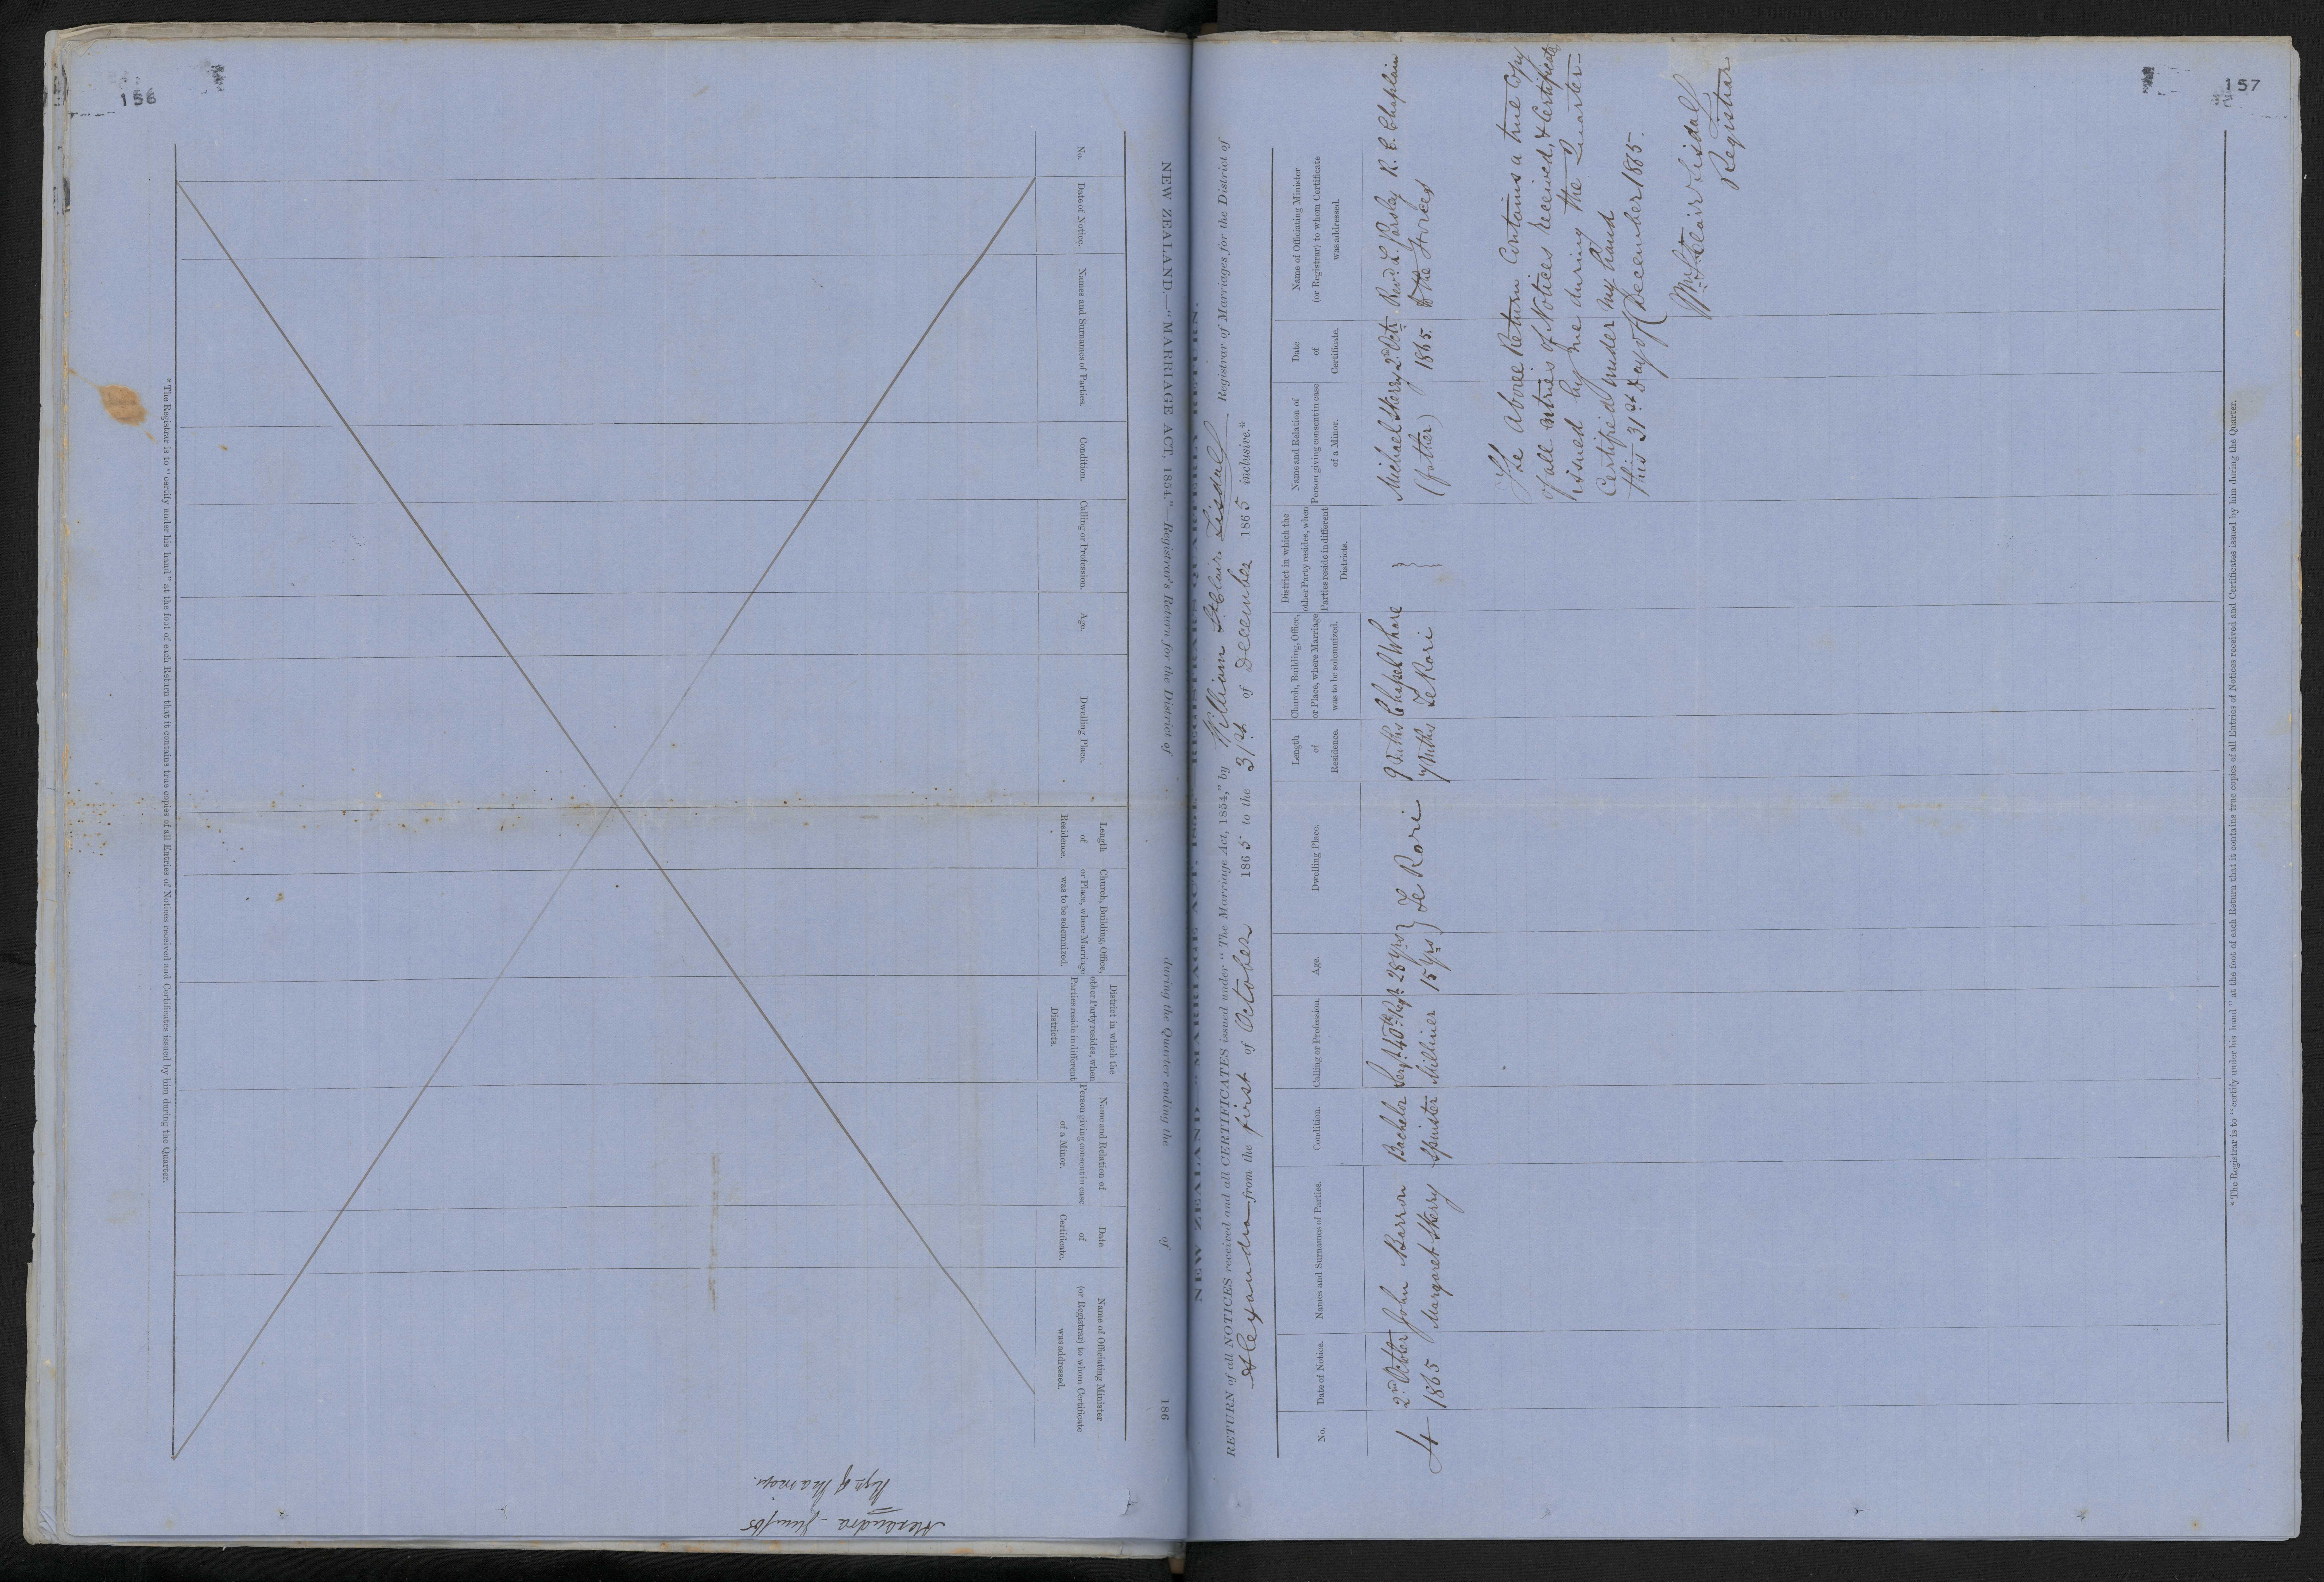 156
NEW ZEALAND.—"MARRIAGE ACT, 1854."—Registrar's Return for the District of during the Quarter ending the of 186
No.
Date of Notice.
Names and Surnames of Parties.
Condition.
Calling or Profession.
Age.
Dwelling Place.
Length
of
Residence.
Church, Building, Office,
or Place, where Marriage
was to be solemnized.
District in which the
other Party resides, when
Parties reside in different
Districts.
Name and Relation of
Person giving consent in case
of a Minor.
Date
of
Certificate.
Name of Officiating Minister
(or Registrar) to whom Certificate
was addressed.
* The Registrar is to "certify under his hand" at the foot of each Return that it contains true copies of all Entries of Notices received and Certificates issued by him during the Quarter.
Alexandra
157
NEW ZEALAND—"MARRIAGE ACT, 1854"—REGISTRAR'S QUARTERLY RETURN.
RETURN of all NOTICES received and all CERTIFICATES issued under "The Marriage Act, 1854," by William St. Clair Tisdall Registrar of Marriages for the District of
Alexandra from the first of October 1865 to the 31st of December 1865 inclusive.*
No.
Date of Notice.
Names and Surnames of Parties.
Condition.
Calling or Profession.
Age.
Dwelling Place.
Length
of
Residence.
Church, Building, Office,
or Place, where Marriage
was to be solemnized.
District in which the
other Party resides, when
Parties reside in different
Districts.
Name and Relation of
Person giving consent in case
of a Minor.
Date
of
Certificate.
Name of Officiating Minister
(or Registrar) to whom Certificate
was addressed.
4 2nd October John Barron Bachelor Sergt. 40th Regt. 28 yrs } Te Rori 9 Mths Chapel Whare } Michael Skerry 2nd Octr. Revd. L. Parslay R. C. Chaplain
1865 Margaret Skerry Spinster Milliner 15 yrs } 7 Mths Te Rori } (father) 1865. to the Forces
The Above Return Contains a true Copy
of all entries of Notices received, & Certificates
issued by me during the Quarter—
Certified under my hand
this 31st day of December 1865.
Wm. St. Clair Tisdall
Registrar
* The Registrar is to "certify under his hand" at the foot of each Return that it contains true copies of all Entries of Notices received and Certificates issued by him during the Quarter.